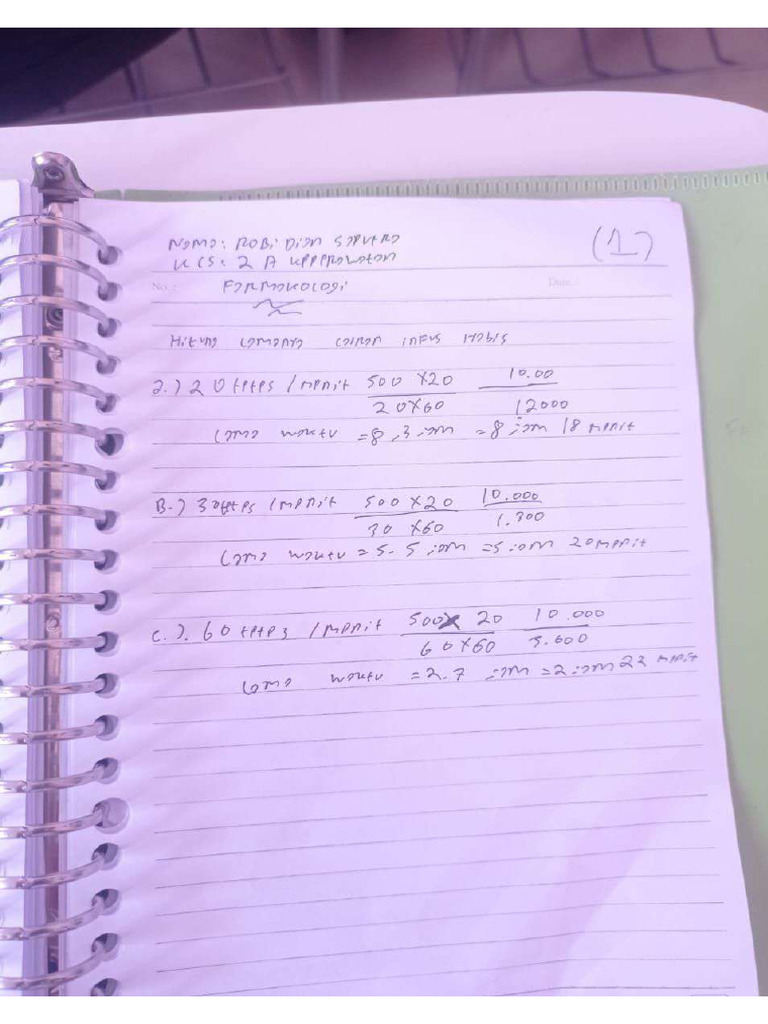 Nama: Robi Dian Saputra
KLS: 2 A Keperawatan
(1)
No.:
Date.:
Farmakologi
Hitung lamanya cairan infus habis
a.) 20 tetes / menit 500 x 20 10.00
20 x 60 12000
lama waktu = 8,3 jam = 8 jam 18 menit
B.) 30 tetes / menit 500 x 20 10.000
30 x 60 1.800
lama waktu = 5.5 jam = 5 jam 20 menit
C.). 60 tetes / menit 500 x 20 10.000
60 x 60 3.600
lama waktu = 2.7 jam = 2 jam 22 menit